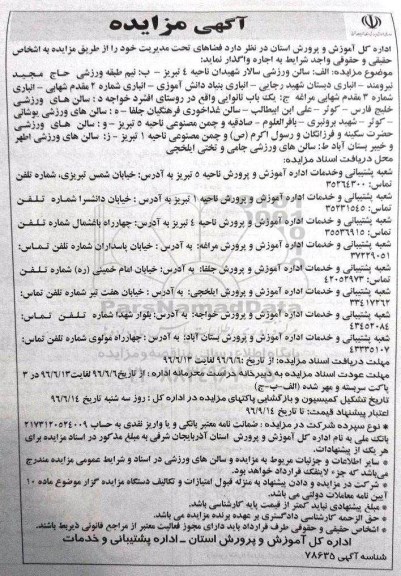 آگهی مزایده
اداره کل آموزش و پرورش استان در نظر دارد فضاهای تحت مدیریت خود را از طریق مزایده به اشخاص
حقیقی و حقوقی واجد شرایط به اجاره واگذار نماید:
موضوع مزایده: الف: سالن ورزشی سالار شهیدان ناحیه ۴ تبریز - ب: نیم طبقه ورزشی حاج مجید
نیرومند - انباری دبستان شهید رجایی - انباری بنیاد دانش آموزی - انباری شماره ۲ مقدم شهایی - انباری
شماره ۳ مقدم شهایی مراغه ج: یک باب نانوایی واقع در روستای افشرد خواجه د: سالن های ورزشی
خلیج فارس - کوثر - علی ابن ابیطالب - سالن غذاخوری فرهنگیان جلفا - ه: سالن های ورزشی
- کوثر - شهید پرونیری - باقرالعلوم - صادقیه و چمن مصنوعی ناحیه ۵ تبریز - و: سالن های ورزشی
حضرت سکینه و فرزانگان و رسول اکرم (ص) و چمن مصنوعی ناحیه ۱ تبریز - ز: سالن های ورزشی اطهر
و خیبر بستان آباد ط: سالن های ورزشی جامی و تختی ایلخچی
محل دریافت اسناد مزایده:
شعبه پشتیبانی وخدمات اداره آموزش و پرورش ناحیه ۵ تبریز به آدرس: خیابان شمس تبریزی، شماره تلفن
تماس: ۳۵۳۶۴۳۰۰
شعبه پشتیبانی و خدمات اداره آموزش و پرورش ناحیه ۱ تبریز به آدرس : خیابان دانشسرا شماره تلفن
تماس: ۳۵۲۳۱۵۴۵
شعبه پشتیبانی و خدمات اداره آموزش و پرورش ناحیه ۴ تبریز به آدرس: چهارراه باغشمال شماره تلفن
تماس: ۳۵۵۳۶۹۱۵
شعبه پشتیبانی و خدمات اداره آموزش و پرورش مراغه: به آدرس : خیابان پاسداران شماره تلفن تماس:
۳۷۲۲۹۰۵۱
شعبه پشتیبانی و خدمات اداره آموزش و پرورش جلفا: به آدرس: خیابان امام خمینی (ره) شماره تلفن
تماس: ۴۲۰۵۲۹۷۳
شعبه پشتیبانی و خدمات اداره آموزش و پرورش ایلخچی: به آدرس : خیابان هفت تیر شماره تلفن تماس:
۳۳۴۱۷۲۶۲
شعبه پشتیبانی و خدمات اداره آموزش و پرورش خواجه: به آدرس: بلوار شهدا شماره تلفن تماس:
۴۳۴۵۲۰۸۴
شعبه پشتیبانی و خدمات اداره آموزش و پرورش بستان آباد: به آدرس : چهارراه مولوی شماره تلفن تماس:
۴۳۳۳۵۱۰۷
مهلت دریافت اسناد مزایده: از تاریخ ۹۶/۶/۶ لغایت ۹۶/۶/۱۳
مهلت عودت اسناد مزایده به دبیرخانه حراست محرمانه اداره : از تاریخ ۹۶/۶/۶ لغایت ۹۶/۶/۱۳ در ۳
پاکت سربسته و مهر شده (الف-ب-ج)
تاریخ تشکیل کمیسیون و بازگشایی پاکتهای مزایده در اداره کل : روز سه شنبه تاریخ ۹۶/۶/۱۴
اعتبار پیشنهاد قیمت: تا تاریخ ۹۶/۹/۱۴
* نوع سپرده شرکت در مزایده : ضمانت نامه معتبر بانکی و یا واریز نقدی به حساب ۲۱۷۳۱۲۰۵۲۴۰۰۹
بانک ملی به نام اداره کل آموزش و پرورش استان آذربایجان شرقی به مبلغ مذکور در اسناد مزایده برای
هر یک از پیشنهادات.
* سایر اطلاعات و جزئیات مربوط به مزایده و سالن های ورزشی در اسناد و شرایط عمومی مزایده مندرج
می‌باشد که جزء لاینفک قرارداد خواهد بود.
* شرکت در مزایده و دادن پیشنهاد به منزله قبول امتیازات و تکالیف دستگاه مزایده گزار موضوع ماده ۱۰
آیین نامه معاملات دولتی می باشد.
* مبلغ پیشنهادی نباید کمتر از قیمت پایه کارشناسی باشد.
* حق الزحمه کارشناسی دادگستری بر عهده برنده مزایده می باشد.
* اشخاص حقیقی و حقوقی طرف قرارداد باید دارای مجوز فعالیت معتبر از مراجع قانونی ذیربط باشند.
اداره کل آموزش و پرورش استان - اداره پشتیبانی و خدمات
شناسه آگهی ۷۸۶۳۵